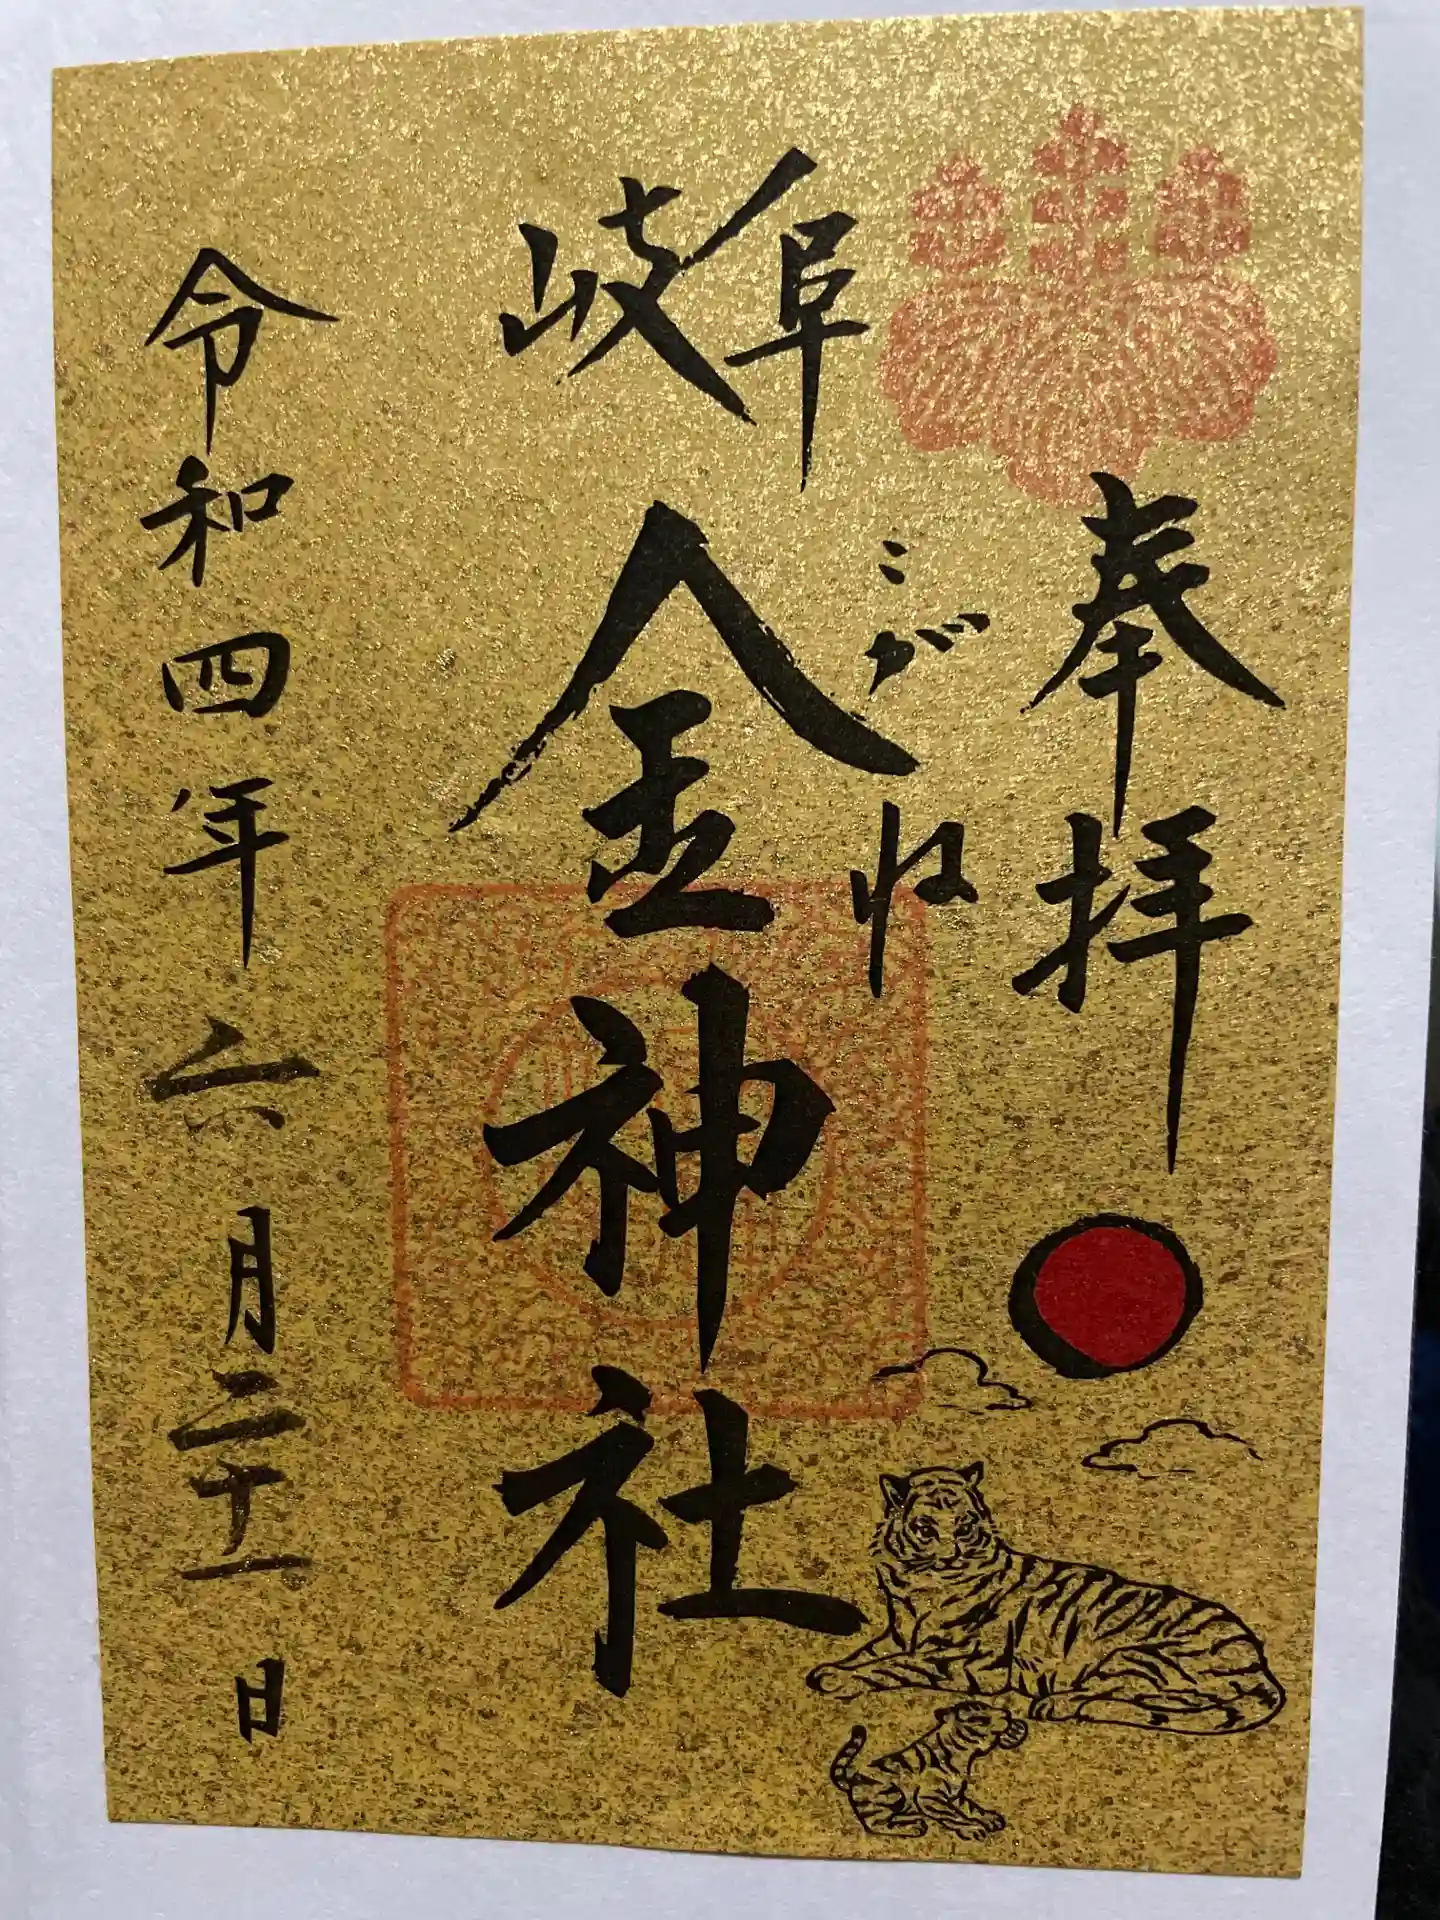 奉拝
岐阜
こがね
金神社
令和四年六月二十一日